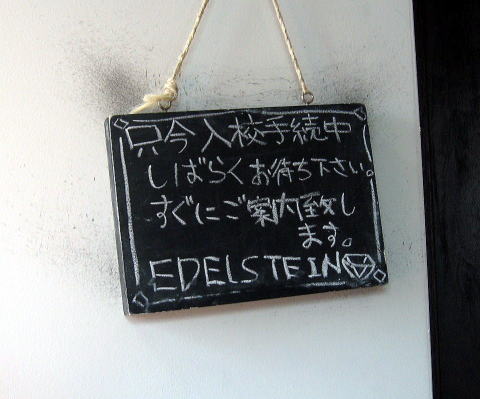 只今入校手続中
しばらくお待ち下さい。
すぐにご案内致し
ます。
EDELSTEIN